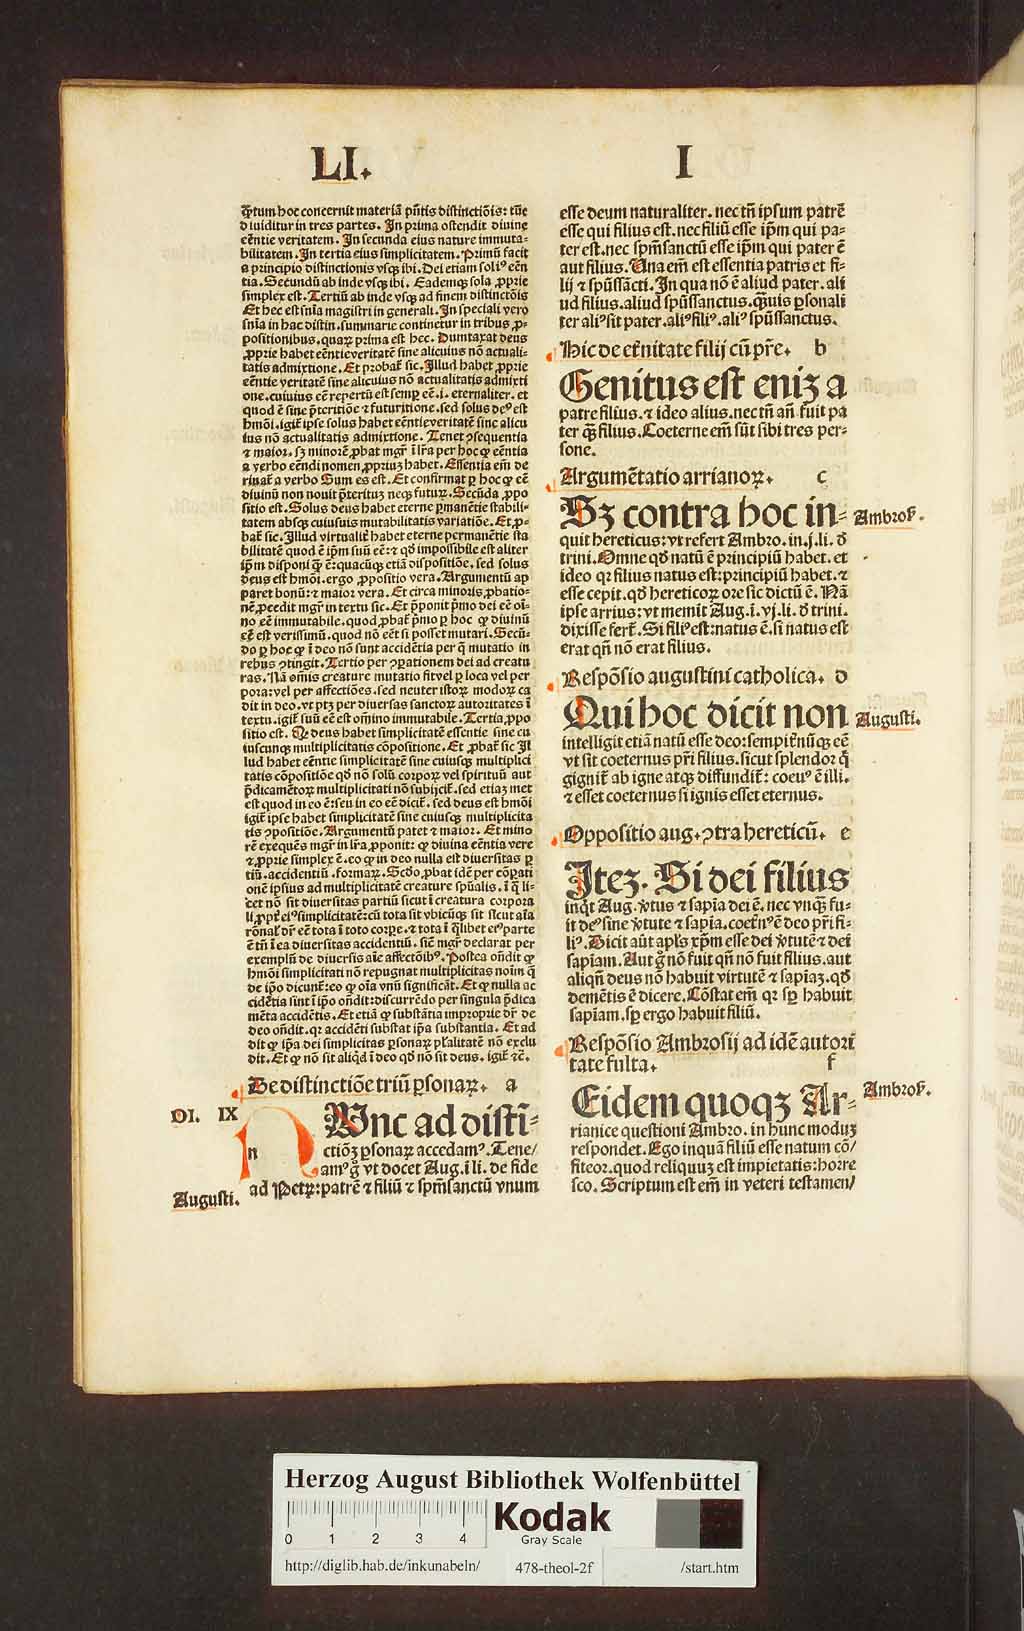 LI.
I
qꝫtum hoc concernit materiā pñtis distinctiōis: tūc
diuiditur in tres partes. In prima ostendit diuine
eēntie veritatem. In secunda eius nature immuta-
bilitatem. In tertia eius simplicitatem. Primū facit
a principio distinctionis vsqꝫ ibi. Dei etiam soliꝰ eēn
tia. Secundū ab inde vsqꝫ ibi. Eademqꝫ sola ꝓprie
simplex est. Tertiū ab inde vsqꝫ ad finem distinctōis
Et hec est snīa magistri in generali. In speciali vero
snīa in hac distin. summarie continetur in tribus ꝓ-
positionibus. quaꝝ prima est hec. Dumtaxat deus
ꝓprie habet eēntie veritatē sine alicuius nō actuali-
tatis admixtione. Et probat̃ sic. Illud habet ꝓprie
eēntie veritatē sine alicuius nō actualitatis admixti
one. cuiuius eē repertū est semꝑ eē. i. eternaliter. et
quod ē sine p̄teritiōe ⁊ futuritione. sed solus deꝰ est
hmōi. igit̃ ipse solus habet eēntie veritatē sine alicu
ius nō actualitatis admixtione. Tenet ꝯsequentia
⁊ maior. sꝫ minorē ꝓbat mgr̄ ī lr̄a per hoc ꝙ eēntia
a verbo eēndi nomen ꝓpriuꝫ habet. Essentia em̄ de
riuat̃ a verbo Sum es est. Et confirmat ꝑ hoc ꝙ eē
diuinū non nouit p̄terituꝫ neqꝫ futuꝝ. Secūda ꝓpo
sitio est. Solus deus habet eterne ꝑmanētie stabili-
tatem absqꝫ cuiusuis mutabilitatis variatiōe. Et ꝓ-
bat̃ sic. Illud virtualit̃ habet eterne permanētie sta
bilitatē quod ē ip̄m suū eē: ⁊ qđ impossibile est aliter
ip̄m disponi ꝙ ē: quacūqꝫ etiā dispositiōe. sed solus
deus est hmōi. ergo ꝓpositio vera. Argumentū ap
paret bonū: ⁊ maior vera. Et circa minoris ꝓbatio-
nē ꝓcedit mgr̄ in textu sic. Et p̄ponit p̄mo dei eē oī-
no eē immutabile. quod ꝓbat̃ p̄mo ꝑ hoc ꝙ diuinū
eē est verissimū. quod nō eēt si posset mutari. Secū-
do ꝑ hoc ꝙ ī deo nō sunt accidētia per q̄ mutatio in
rebus ꝯtingit. Tertio per ꝯparationem dei ad creatu
ras. Nā om̄is creature mutatio fit vel ꝑ loca vel per
pora: vel per affectiōes. sed neuter istoꝝ modoꝝ ca
dit in deo. vt ptꝫ per diuersas sanctoꝝ autoritates ī
textu. igit̃ suū eē est om̄ino immutabile. Tertia ꝓpo
sitio est. Qꝫ deus habet simplicitatē essentie sine cu
iuscunqꝫ multiplicitatis cōpositione. Et ꝓbat̃ sic Il
lud habet eēntie simplicitatē sine cuiusqꝫ multiplici
tatis cōpositiōe qđ nō solū corpoꝝ vel spirituū aut
p̄dicamētoꝝ multiplicitati nō subijcit̃. sed etiaꝫ met
est quod in eo ē: seu in eo eē dicit̃. sed deus est hmōi
igit̃ ipse habet simplicitatē sine cuiusqꝫ multiplicita
tis ꝯpositiōe. Argumentū patet ⁊ maior. Et mino
rē exequēs mgr̄ in lr̄a ꝓponit: ꝙ diuina eēntia vere
⁊ ꝓprie simplex ē. eo ꝙ in deo nulla est diuersitas ꝑ
tiū. accidentiū. formaꝝ. Scđo ꝓbat idē per cōpati
onē ipsius ad multiplicitatē creature spūalis. ī q̄ li-
cet nō sit diuersitas partiū sicut ī creatura corpora
li. ꝓpt̃ eiꝰ simplicitatē: cū tota sit vbicūqꝫ sit sicut aīa
rōnal̄ dr̄ eē tota ī toto corpe. ⁊ tota ī q̄libet eiꝰ parte
ē tn̄ ī ea diuersitas accidentiū. sic̄ mgr̄ declarat per
exemplū de diuersis aīe affectiōibꝰ. Postea oñdit ꝙ
hmōi simplicitati nō repugnat multiplicitas noīm q̄
de ip̄o dicunt̃: eo ꝙ oīa vnū significāt. Et ꝙ nulla ac
cidētia sint ī ip̄o oñdit: discurrēdo per singula p̄dica
mēta accidētis. Et etiā ꝙ substātia improprie dr̄ de
deo oñdit. qꝛ accidēti substat ip̄a substantia. Et ad
dit ꝙ ip̄a dei simplicitas ꝑsonaꝝ pl̄alitatē nō exclu
dit. Et ꝙ nō sit aliqđ ī deo qđ nō sit deus. igit̃ ⁊c̄.
De distinctiōe triū ꝑsonaꝝ. a
DI. IX
n
Unc ad distī-
ctiōꝫ ꝑsonaꝝ accedamꝰ. Tene/
amꝰ g̊ vt docet Aug. ī li. de fide
Augusti.
ad Petꝝ: patrē ⁊ filiū ⁊ spm̄sanctū vnum
esse deum naturaliter. nec tn̄ ipsum patrē
esse qui filius est. nec filiū esse ip̄m qui pa-
ter est. nec spm̄sanctū esse ip̄m qui pater ē
aut filius. Una em̄ est essentia patris et fi-
lij ⁊ spūssācti. In qua nō ē aliud pater. ali
ud filius. aliud spūssanctus. Qꝫuis ꝑsonali
ter aliꝰ sit pater. aliꝰ filiꝰ. aliꝰ spūssanctus.
Hic de et̃nitate filij cū pr̄e. b
Genitus est enīꝫ a
patre filius. ⁊ ideo alius. nec tn̄ añ fuit pa
ter qꝫ filius. Coeterne em̄ sūt sibi tres per-
sone.
Argumētatio arrianoꝝ. c
Sꝫ contra hoc in-
Ambroꝭ.
quit hereticus: vt refert Ambro. in. j. li. đ
trini. Omne qđ natū ē principiū habet. et
ideo qꝛ filius natus est: principiū habet. ⁊
esse cepit. qđ hereticoꝝ ore sic dictū ē. Nā
ipse arrius: vt memīt Aug. ī. vj. li. đ trini.
dixisse fert̃. Si filiꝰ est: natus ē. si natus est
erat qñ nō erat filius.
Respōsio augustini catholica. d
Qui hoc dicit non
Augusti.
intelligit etiā natū esse deo: sempit̃nūqꝫ eē
vt sit coeternus pr̄i filius. sicut splendor q̄
gignit̃ ab igne atqꝫ diffundit̃: coeuꝰ ē illi.
⁊ esset coeternus si ignis esset eternus.
Oppositio aug. ꝯtra hereticū. e
Iteꝫ. Si dei filius
inq̄t Aug. v̄tus ⁊ sapīa dei ē. nec vnqꝫ fu-
it deꝰ sine v̄tute ⁊ sapīa. coet̃nꝰ ē deo pr̄i fi-
liꝰ. Dicit aūt apl̄s xp̄m esse dei v̄tutē ⁊ dei
sapīam. Aut g̊ nō fuit qñ nō fuit filius. aut
aliqñ deus nō habuit virtutē ⁊ sapīaꝫ. qđ
demētis ē dicere. Cōstat em̄ qꝛ sꝑ habuit
sapīam. sꝑ ergo habuit filiū.
Respōsio Ambrosij ad idē autori
tate fulta. f
Eidem quoqꝫ Ar-
Ambroꝭ.
rianice questioni Ambro. in hunc moduꝫ
respondet. Ego inquā filiū esse natum cō/
fiteor. quod reliquuꝫ est impietatis: horre
sco. Scriptum est em̄ in veteri testamen/
Herzog August Bibliothek Wolfenbüttel
0 1 2 3 4
Kodak
Gray Scale
http://diglib.hab.de/inkunabeln/
478-theol-2f
/start.htm